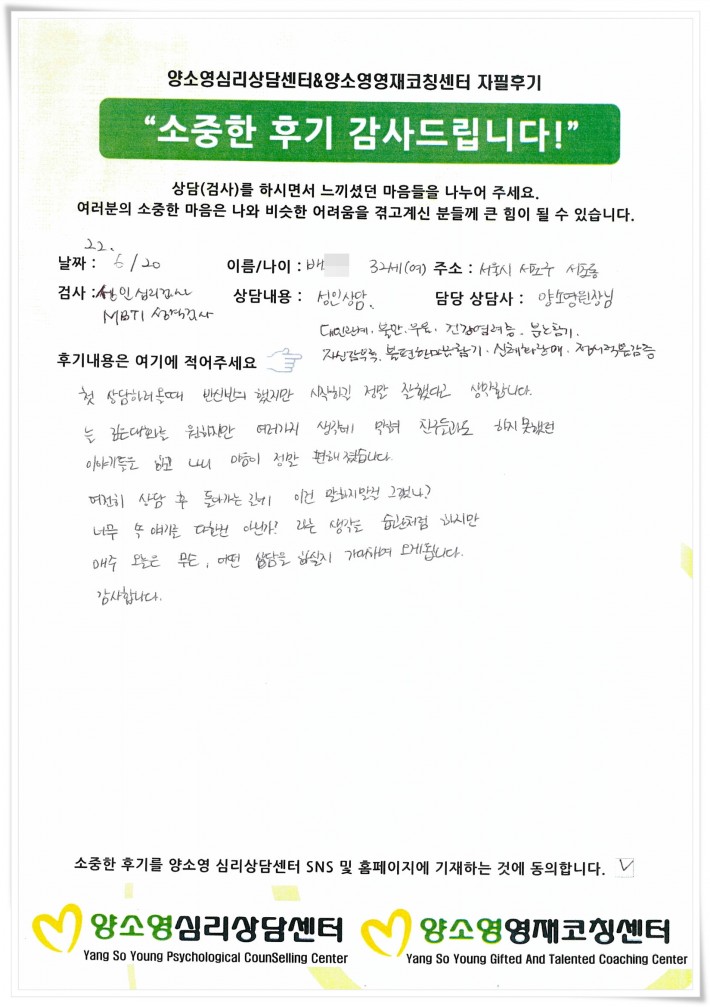 양소영심리상담센터&양소영영재코칭센터 자필후기
“소중한 후기 감사드립니다!”
상담(검사)를 하시면서 느끼셨던 마음들을 나누어 주세요.
여러분의 소중한 마음은 나와 비슷한 어려움을 겪고계신 분들께 큰 힘이 될 수 있습니다.
22.
날짜 : 6/20 이름/나이 : 배 32세(여) 주소 : 서울시 서초구 서초동
검사 : 성인심리검사 상담내용 : 성인상담. 담당 상담사 : 양소영원장님
MBTI 성격검사
대인관계. 불만. 우울. 건강염려증. 분노참기.
후기내용은 여기에 적어주세요
자신감부족. 불편한마음참기. 신체화장애. 정서적둔감증
첫 상담하러올때 반신반의 했지만 시작하길 정말 잘했다고 생각합니다.
늘 깊은대화를 원하지만 여러가지 생각에 막혀 친구들과도 하지 못했던
이야기들을 하고 나니 마음이 정말 편해졌습니다.
여전히 상담 후 돌아가는 길에 이런 말하지말걸 그랬나?
너무 속 얘기를 다한건 아닌가? 라는 생각을 습관처럼 하지만
매주 오늘은 무슨, 어떤 상담을 하실지 기대하며 오게됩니다.
감사합니다.
소중한 후기를 양소영 심리상담센터 SNS 및 홈페이지에 기재하는 것에 동의합니다.
양소영심리상담센터 양소영영재코칭센터
Yang So Young Psychological CounSelling Center Yang So Young Gifted And Talented Coaching Center